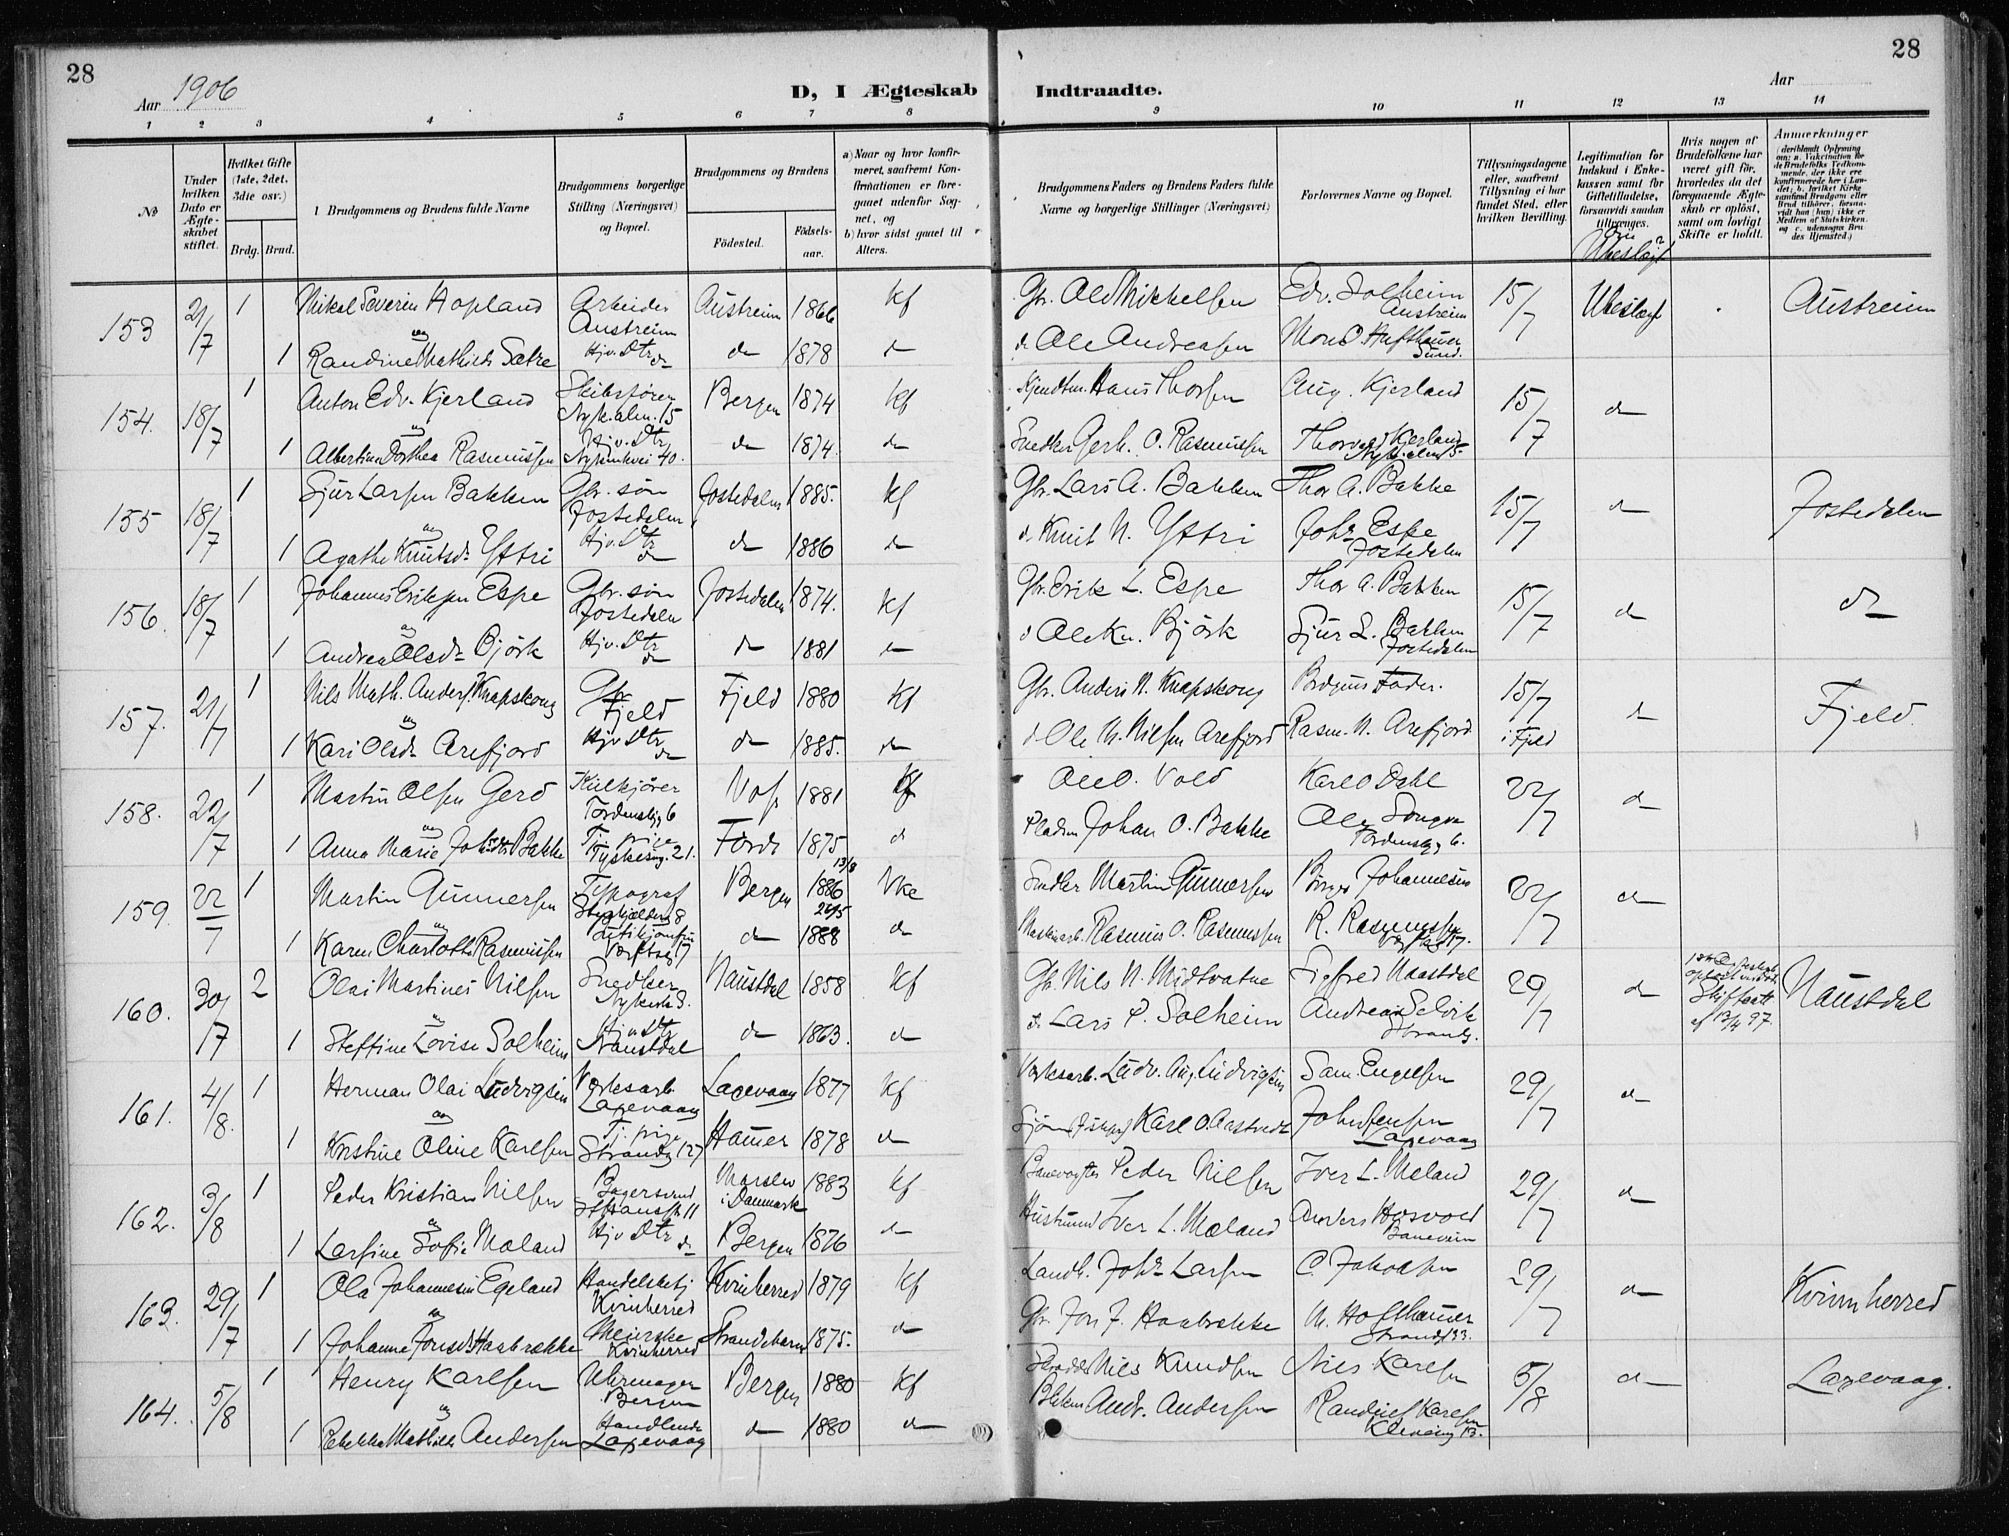 28
Aar 1906
D, I Ægteskab Indtraadte.
Aar
28
1 2 3 4 5 6 7 8 9 10 11 12 13 14
No
Under hvilken Dato er Ægteskabet stiftet.
Hvilket Gifte (1ste, 2det, 3die osv.)
Brdg. Brud.
1 Brudgommens og Brudens fulde Navne
Brudgommens borgerlige Stilling (Næringsvei) og Bopæl.
Brudgommens og Brudens
Fødested.
Fødselsaar.
a) Naar og hvor konfirmeret, saafremt Konfirmationen er foregaaet udenfor Sognet, og
b) hvor sidst gaaet til Alters.
Brudgommens Faders og Brudens Faders fulde Navne og borgerlige Stillinger (Næringsvei)
Forlovernes Navne og Bopæl.
Tillysningsdagene eller, saafremt Tillysning ei har fundet Sted, efter hvilken Bevilling.
Legitimation for Indskud i Enkekassen samt for Giftetilladelse, forsaavidt saadan tiltrænges.
Hvis nogen af Brudefolkene har været gift før, hvorledes da det foregaaende Ægteskab er opløst, samt om lovligt Skifte er holdt.
Anmærkninger (deriblandt Oplysning om: a. Vakcination for de Brudefolks Vedkommende, der ikke ere konfirmerede her i Landet; b. hvilket Kirkesamfund Brudgom eller Brud tilhører, forsaavidt han (hun) ikke er Medlem af Statskirken, og c. udensogns Brudes Hjemsted.)
153 21/7 1 Mikal Severin Hopland Arbeider Austreim Austreim 1866 kf Gbr. Ole Mikkelsen Edv. Solheim Austreim 15/7 Ubeslægt Austreim
og
1 Randine Mathilde Sætre Hjv. Dtr do do 1878 do do Ole Andreasen Mons O. Hufthamer Sund.
154. 18/7 1 Anton Edv. Kjerland Skibsfører Nyk.alm. 15 Bergen 1874 kf Hans Thorsen Aug. Kjerland 15/7 do
og
1 Albertine Dorthea Rasmussen Hjv. Dtr 40. do 1874. do Snedker Gerh. O. Rasmussen Thorvald Kjerland Nyk. alm 15
155 18/7 1 Sjur Larsen Bakken Gbr. søn Jostedalen Jostedalen 1885. kf Gbr. Lars A. Bakken Thor A. Bakke 15/7 do Jostedalen
og
1 Agathe Knutsdr Ystri Hjv. Dtr do do 1886 do do Knut N. Ystri Johs Espe Jostedalen
156. 18/7 1 Johannes Eriksen Espe Gbr. søn Jostedalen Jostedalen 1874. kf Gbr. Erik L. Espe Thor A. Bakken 15/7 do do
og
1 Andrea Olsdr Bjørk Hjv. Dtr do do 1881 do do Ole Kn. Bjørk Sjur L. Bakken Jostedalen
157. 21/7 1 Nils Math. Anders. Knapskoug Gbr Fjeld Fjeld 1880 kf Gbr. Anders N. Knapskoug Brdgms Fader. 15/7 do Fjeld.
og
1 Kari Olsdr Arefjord Hjv Dtr do do 1885. do do Ole M. Nilsen Arefjord Rasm. N. Arefjord i Fjeld
158. 22/7 1 Martin Olsen Gerd Kulkjører Tordenskjg 6 Voss 1881 kf Ole O. Vold Karl O Dahl 22/7 do
og
1 Anna Marie Johsdtr Bakke Tj. pige Tyskesmg. 21. Førde 1875 do Pladsm Johan O. Bakke Ole Songve Tordenskjg 6.
159. 22/7 1 Martin Gunnersen Typograf 8 Bergen 13/8 1886 Vke Snedker Martin Gunnersen Børger Johannesen 22/7 do
og
1 Karen Charlotte Rasmussen Verftsg 17 do 26/5 1888 do Maskinarb. Rasmus O. Rasmussen R. Rasmussen Verftsg 17.
160. 30/7 2 Olai Martinus Nilsen Snedker Naustdal 1858 kf Gbr. Nils N. Midtvatne Sigfred Naastdal 29/7 do 1ste Egteskab opløst Skifteatt. af 13/4 97. Naustdal
og
1 Steffine Lovise Solheim Hjv Dtr Naustdal do 1863. do do Lars P. Solheim Andreas Selvik Strandg.
161. 4/8. 1 Herman Olai Ludvigsen Verksarb Laxevaag Laxevaag 1877 kf Verksarb. Ludv. Aug. Ludvigsen Sam. Engelsen 29/7 do
og
1 Kristine Oline Karlsen Tj. pige Strandg 127 Hamer 1878 do Karl O. Aastvedt Johs Jensen Laxevaag
162. 3/8 1 Peder Kristian Nilsen Bagersvend i Danmark 1883 kf Banevogter Peder Nilsen Iver L. Mæland 29/7 do
og
1 Larsine Sofie Mæland Hjv Dtr do Bergen 1876 do Hustmand Iver L. Mæland Anders Hosvold Baneveien
163. 29/7 1 Ola Johannesen Egeland Handelsbetj Kvinherred Kvinherred 1879 kf Landh. Johs Larsen C. Jakobsen 29/7 do Kvinnherred
og
1 Johanne Jonsdtr Haabrække Meierske Kvinherred Strandebarm 1875. do Gbr Jon J. Haabrekke M. Hofthamer Strandg 133.
164. 5/8 1 Henry Karlsen Uhrmager Bergen Bergen 1880 kf Nils Knudsen Nils Karlsen 5/8 do Laxevaag.
og
1 Rebekka Mathilde Andersen Handlende Laxevaag do 1880 do Andr. Andersen Randulf Karlsen